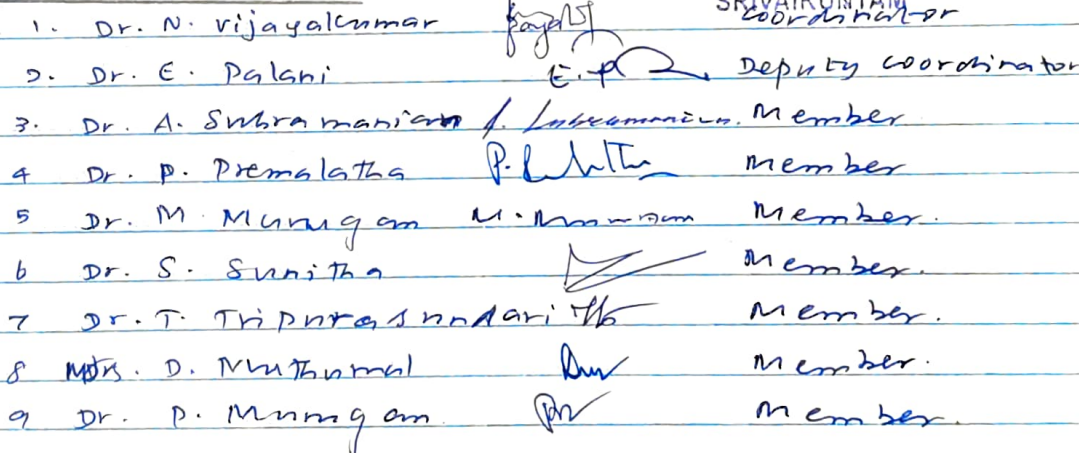 SRIVAIKUNTAM
1. Dr. N. Vijayakumar Coordinator
2. Dr. E. Palani E. P Deputy Coordinator
3. Dr. A. Subramanian A. Subramanian. Member
4 Dr. P. Premalatha Member
5 Dr. M. Murugan M. Murugan Member.
6 Dr. S. Sunitha Member.
7 Dr. T. Tripurasundari Member.
8 Mrs. D. Muthumal Member.
9 Dr. P. Murugan Member.